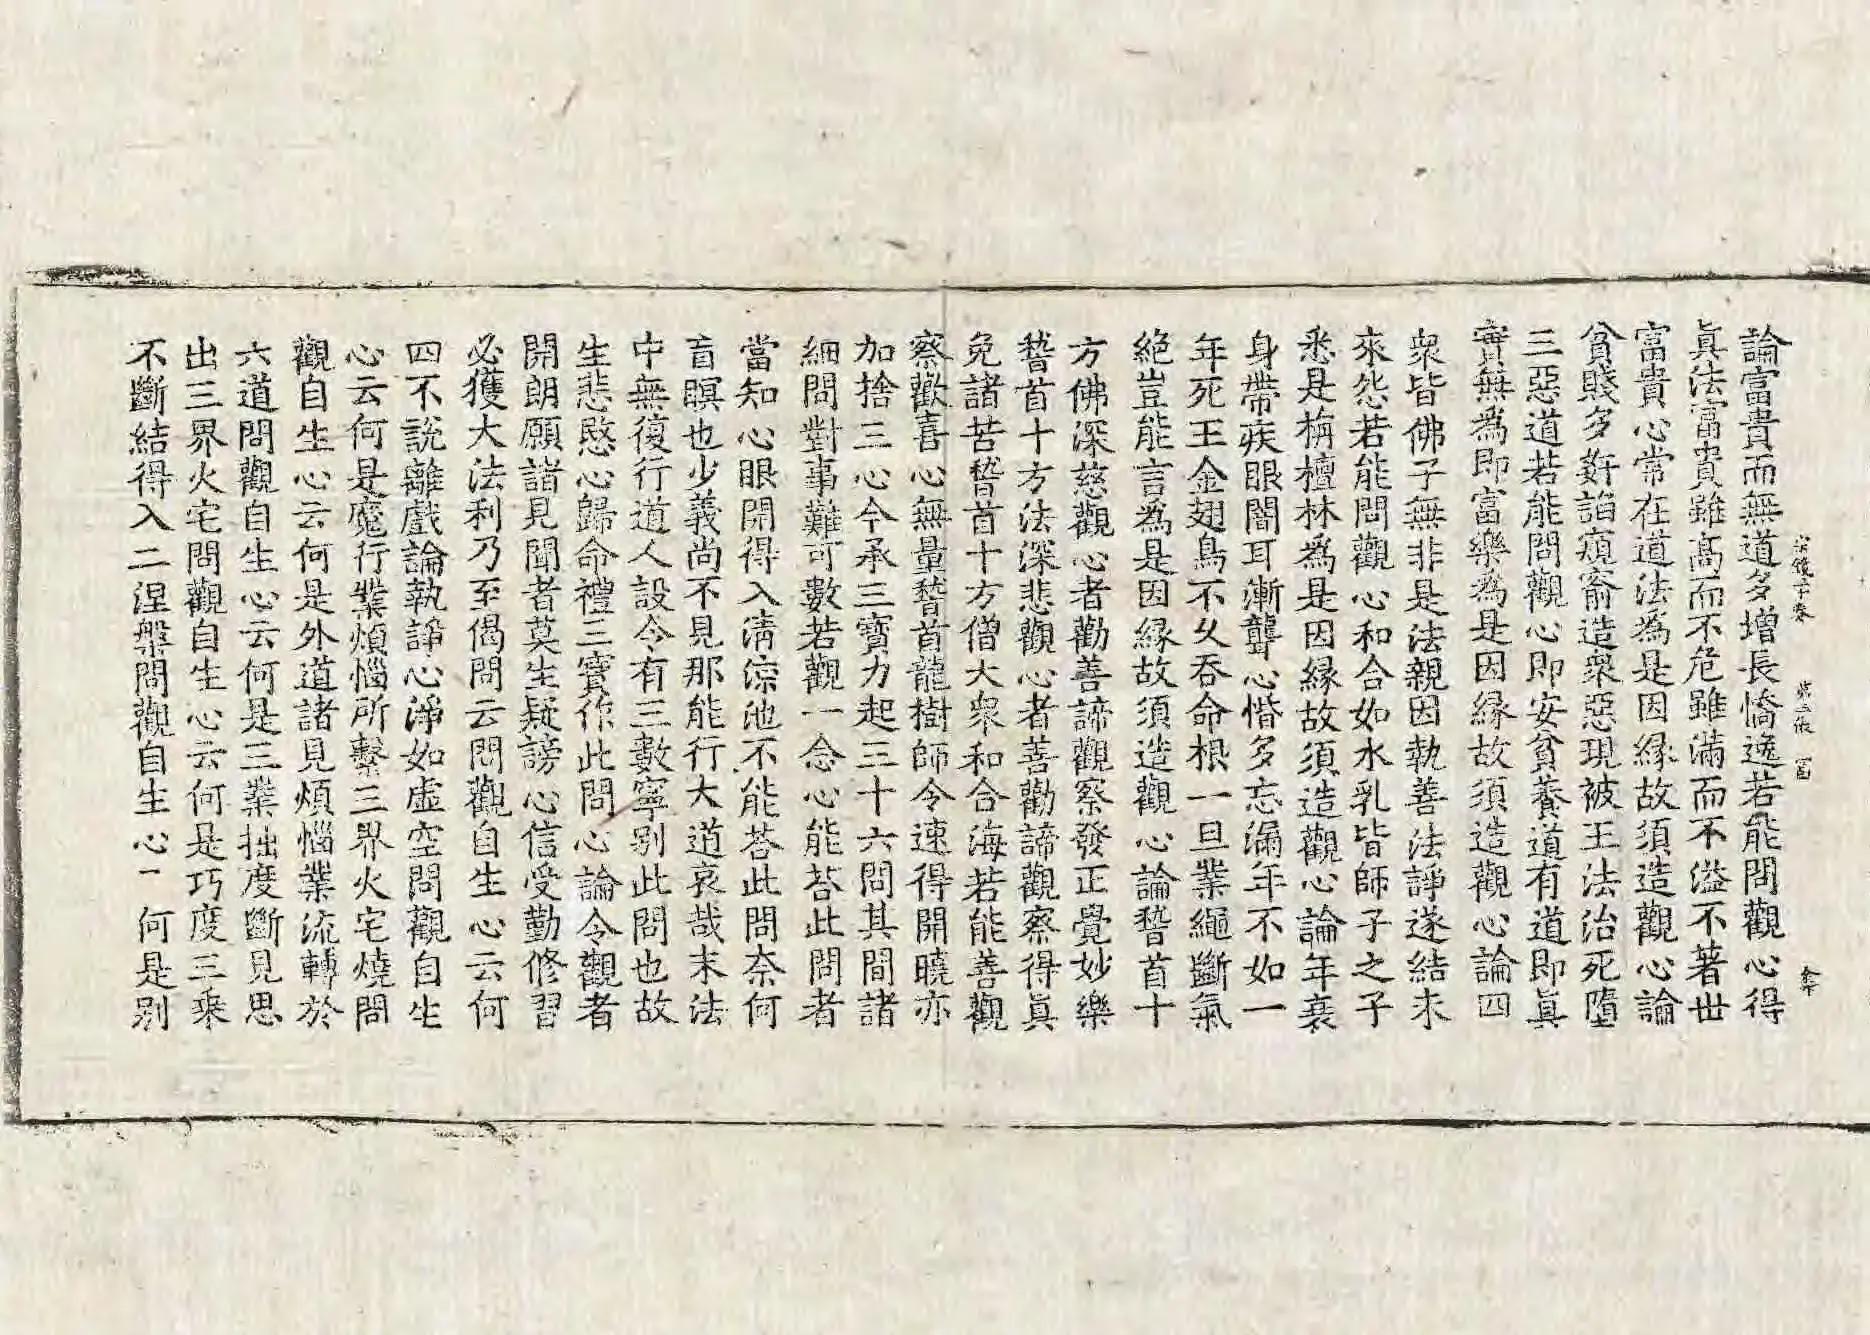 論富貴而無道多增長憍逸若能問觀心得
眞法富貴雖高而不危雖滿而不溢不著世
富貴心常在道法為是因緣故須造觀心論
貧賤多姧諂頑窬造衆惡現被王法治死墮
三惡道若能問觀心即安貧養道有道即眞
寳無為即富樂為是因緣故須造觀心論四
衆皆佛子無非是法親因執善法諍遂結未
來怨若能問觀心和合如水乳皆師子之子
悉是栴檀林為是因緣故須造觀心論年衰
身帶疾眼闇耳漸聾心惛多忘漏年不如一
年死王金翅鳥不久吞命根一旦業繩斷氣
絕豈能言為是因緣故須造觀心論稽首十
方佛深慈觀心者勸善諦觀察發正覺妙樂
稽首十方法深悲觀心者善勸諦觀察得眞
免諸苦稽首十方僧大衆和合海若能善觀
察歡喜心無量稽首龍樹師令速得開曉亦
加捨三心今承三寶力起三十六問其間諸
細問對事難可數若觀一念心能荅此問者
當知心眼開得入清涼池不能荅此問柰何
盲瞑也少義尚不見那能行大道哀哉末法
中無復行道人設令有三數寧別此問也故
生悲愍心歸命禮三寶作此問心論令觀者
開朗願諸見聞者莫生疑謗心信受勤修習
必獲大法利乃至偈問云問觀自生心云何
四不說離戲論執諍心淨如虛空問觀自生
心云何是魔行業煩惱所繫三界火宅燒問
觀自生心云何是外道諸見煩惱業流轉於
六道問觀自生心云何是三業拙度斷見思
出三界火宅問觀自生心云何是巧度三乘
不斷結得入二涅槃問觀自生心一何是別